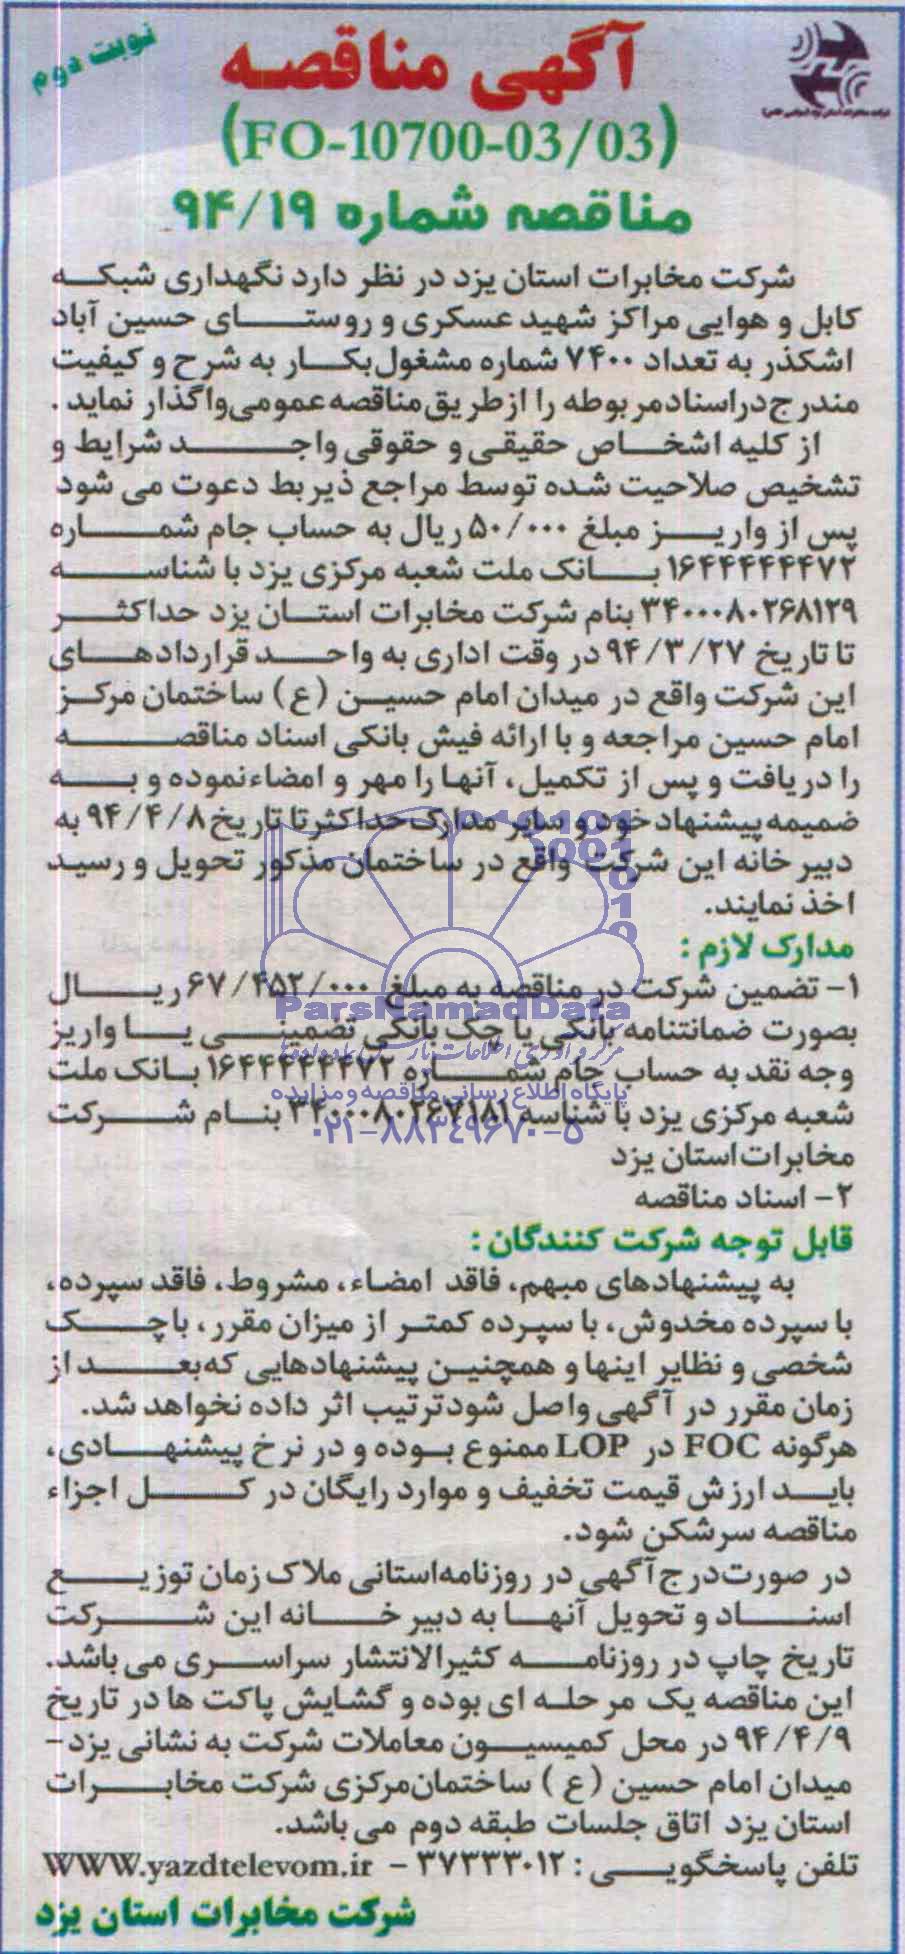 نوبت دوم
آگهی مناقصه
(FO-10700-03/03)
مناقصه شماره ۹۴/۱۹
شرکت مخابرات استان یزد در نظر دارد نگهداری شبکه
کابل و هوایی مراکز شهید عسکری و روستای حسین آباد
اشکذر به تعداد ۷۴۰۰ شماره مشغول بکار به شرح و کیفیت
مندرج در اسناد مربوطه را از طریق مناقصه عمومی واگذار نماید.
از کلیه اشخاص حقیقی و حقوقی واجد شرایط و
تشخیص صلاحیت شده توسط مراجع ذیربط دعوت می شود
پس از واریز مبلغ ۵۰/۰۰۰ ریال به حساب جام شماره
۱۶۴۴۴۴۴۴۷۲ بانک ملت شعبه مرکزی یزد با شناسه
۳۴۰۰۰۸۰۲۶۸۱۲۹ بنام شرکت مخابرات استان یزد حداکثر
تا تاریخ ۹۴/۳/۲۷ در وقت اداری به واحد قراردادهای
این شرکت واقع در میدان امام حسین (ع) ساختمان مرکز
امام حسین مراجعه و با ارائه فیش بانکی اسناد مناقصه
را دریافت و پس از تکمیل، آنها را مهر و امضاء نموده و به
ضمیمه پیشنهاد خود و سایر مدارک حداکثر تا تاریخ ۹۴/۴/۸ به
دبیر خانه این شرکت واقع در ساختمان مذکور تحویل و رسید
اخذ نمایند.
مدارک لازم :
۱- تضمین شرکت در مناقصه به مبلغ ۶۷/۴۵۲/۰۰۰ ریال
بصورت ضمانتنامه بانکی یا چک بانکی تضمینی یا واریز
وجه نقد به حساب جام شماره ۱۶۴۴۴۴۴۴۷۲ بانک ملت
شعبه مرکزی یزد با شناسه ۳۴۰۰۰۸۰۲۶۷۱۸۱ بنام شرکت
مخابرات استان یزد
۲- اسناد مناقصه
قابل توجه شرکت کنندگان :
به پیشنهادهای مبهم، فاقد امضاء، مشروط، فاقد سپرده،
با سپرده مخدوش، با سپرده کمتر از میزان مقرر، با چک
شخصی و نظایر اینها و همچنین پیشنهادهایی که بعد از
زمان مقرر در آگهی واصل شود ترتیب اثر داده نخواهد شد.
هرگونه FOC در LOP ممنوع بوده و در نرخ پیشنهادی،
باید ارزش قیمت تخفیف و موارد رایگان در کل اجزاء
مناقصه سرشکن شود.
در صورت درج آگهی در روزنامه استانی ملاک زمان توزیع
اسناد و تحویل آنها به دبیر خانه این شرکت
تاریخ چاپ در روزنامه کثیرالانتشار سراسری می باشد.
این مناقصه یک مرحله ای بوده و گشایش پاکت ها در تاریخ
۹۴/۴/۹ در محل کمیسیون معاملات شرکت به نشانی یزد-
میدان امام حسین (ع) ساختمان مرکزی شرکت مخابرات
استان یزد اتاق جلسات طبقه دوم می باشد.
تلفن پاسخگویی : ۳۷۲۳۳۰۱۲ - WWW.yazdtelevom.ir
شرکت مخابرات استان یزد
ParsNamadData
پایگاه اطلاع رسانی مناقصه و مزایده
۰۲۱-۸۸۳۴۹۶۷۰-۵